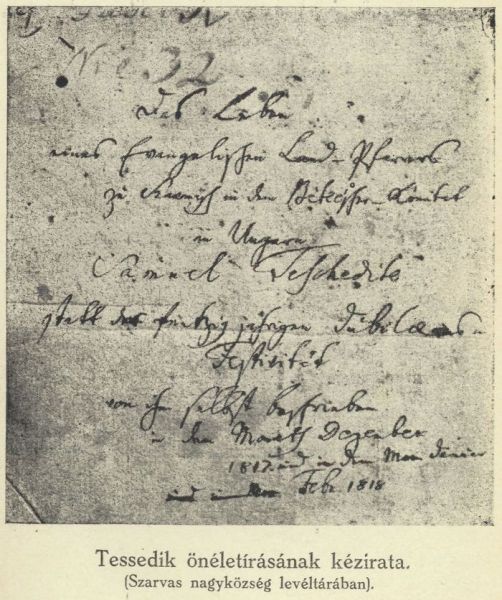 Nro. 32
Das Leben
eines Evangelischen Land-Pfarrers
zu Szarvas in dem Békeser-Komitat
in Ungarn
Samuel Teschedik
statt der funfzig jährigen Jubilaeums-
Festivität
von ihm selbst beschrieben
in dem Monath Dezember
1817. und in dem
Febr. 1818
Tessedik önéletírásának kézirata.
(Szarvas nagyközség levéltárában).